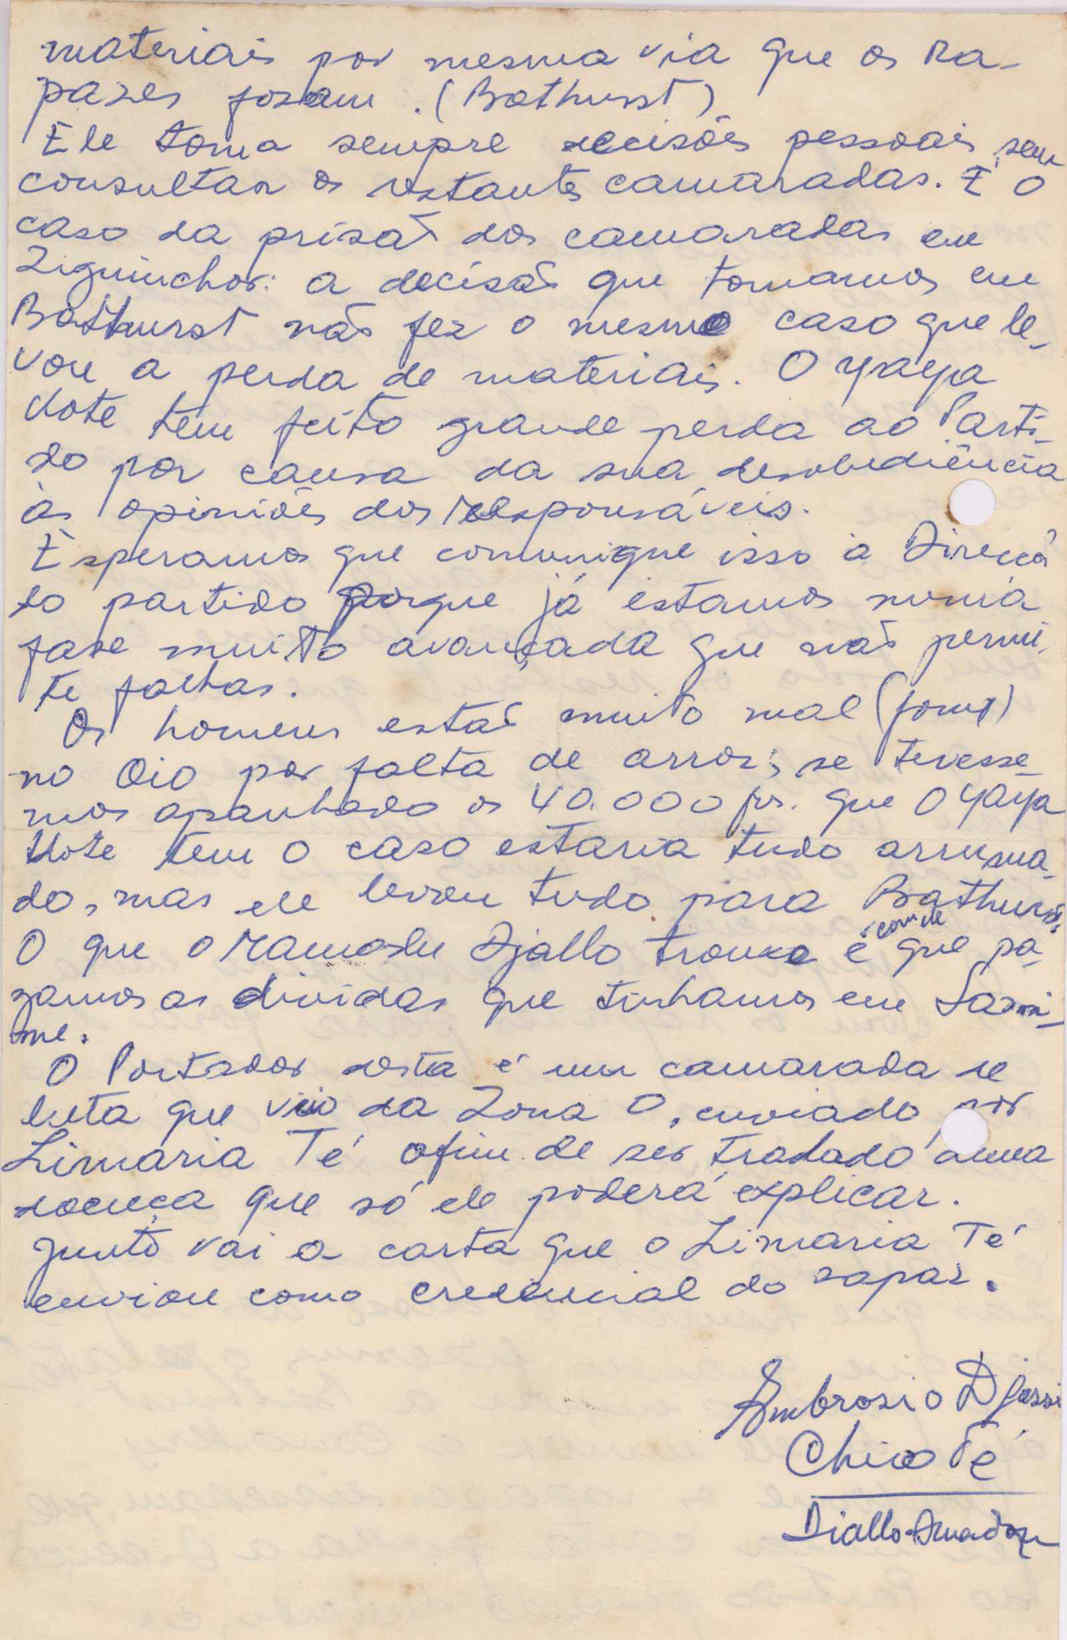 materiais por mesma via que os ra-
pazes foram. (Bathurst)
Ele toma sempre decisões pessoais, sem
consultar os restantes camaradas. É o
caso da prisão dos camaradas em
Ziguinchor: a decisão que tomamos em
Bathurst não fez o mesmo caso que le-
vou a perda de materiais. O Yaya
Koté tem feito grande perda ao Parti-
do por causa da sua desobediência
às opiniões dos responsáveis.
Esperamos que comunique isso à Direcção
do partido porque já estamos numa
fase muito avançada que não permi-
te faltas.
Os homens estão muito mal (fome)
no Oio por falta de arroz; se tevesse-
mos apanhado os 40.000 frs. que o Yaya
Koté tem o caso estaria tudo arruma-
do, mas ele levou tudo para Bathurst.
O que o Mamadu Djallo trouxe é com ele que pa-
gamos as dividas que tinhamos em Samine.
O Portador desta é um camarada de
luta que vio da Zona O, enviado por
Limaria Té afim de ser tratado duma
doença que só ele poderá explicar.
Junto vai a carta que o Limaria Té
enviou como credencial do rapaz.
Ambrosio Djassi
Chico Té
Diallo Amadou